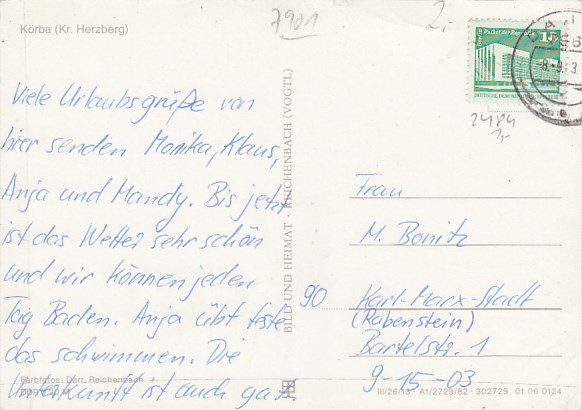 Körba (Kr. Herzberg)
7901
2,-
Viele Urlaubsgrüße von
hier senden Monika, Klaus,
Anja und Mandy. Bis jetzt
ist das Wetter sehr schön
und wir können jeden
Tag Baden. Anja übt feste
das schwimmen. Die
Unterkunft ist auch gut.
Farbfotos: Darr, Reichenbach
BILD UND HEIMAT · REICHENBACH (VOGTL)
15
2484
Frau
M. Bonitz
90 Karl-Marx-Stadt
(Rabenstein)
Bartelstr. 1
9-15-03
III/26/13 · A1/2729/82 · 302729 01 06 0124